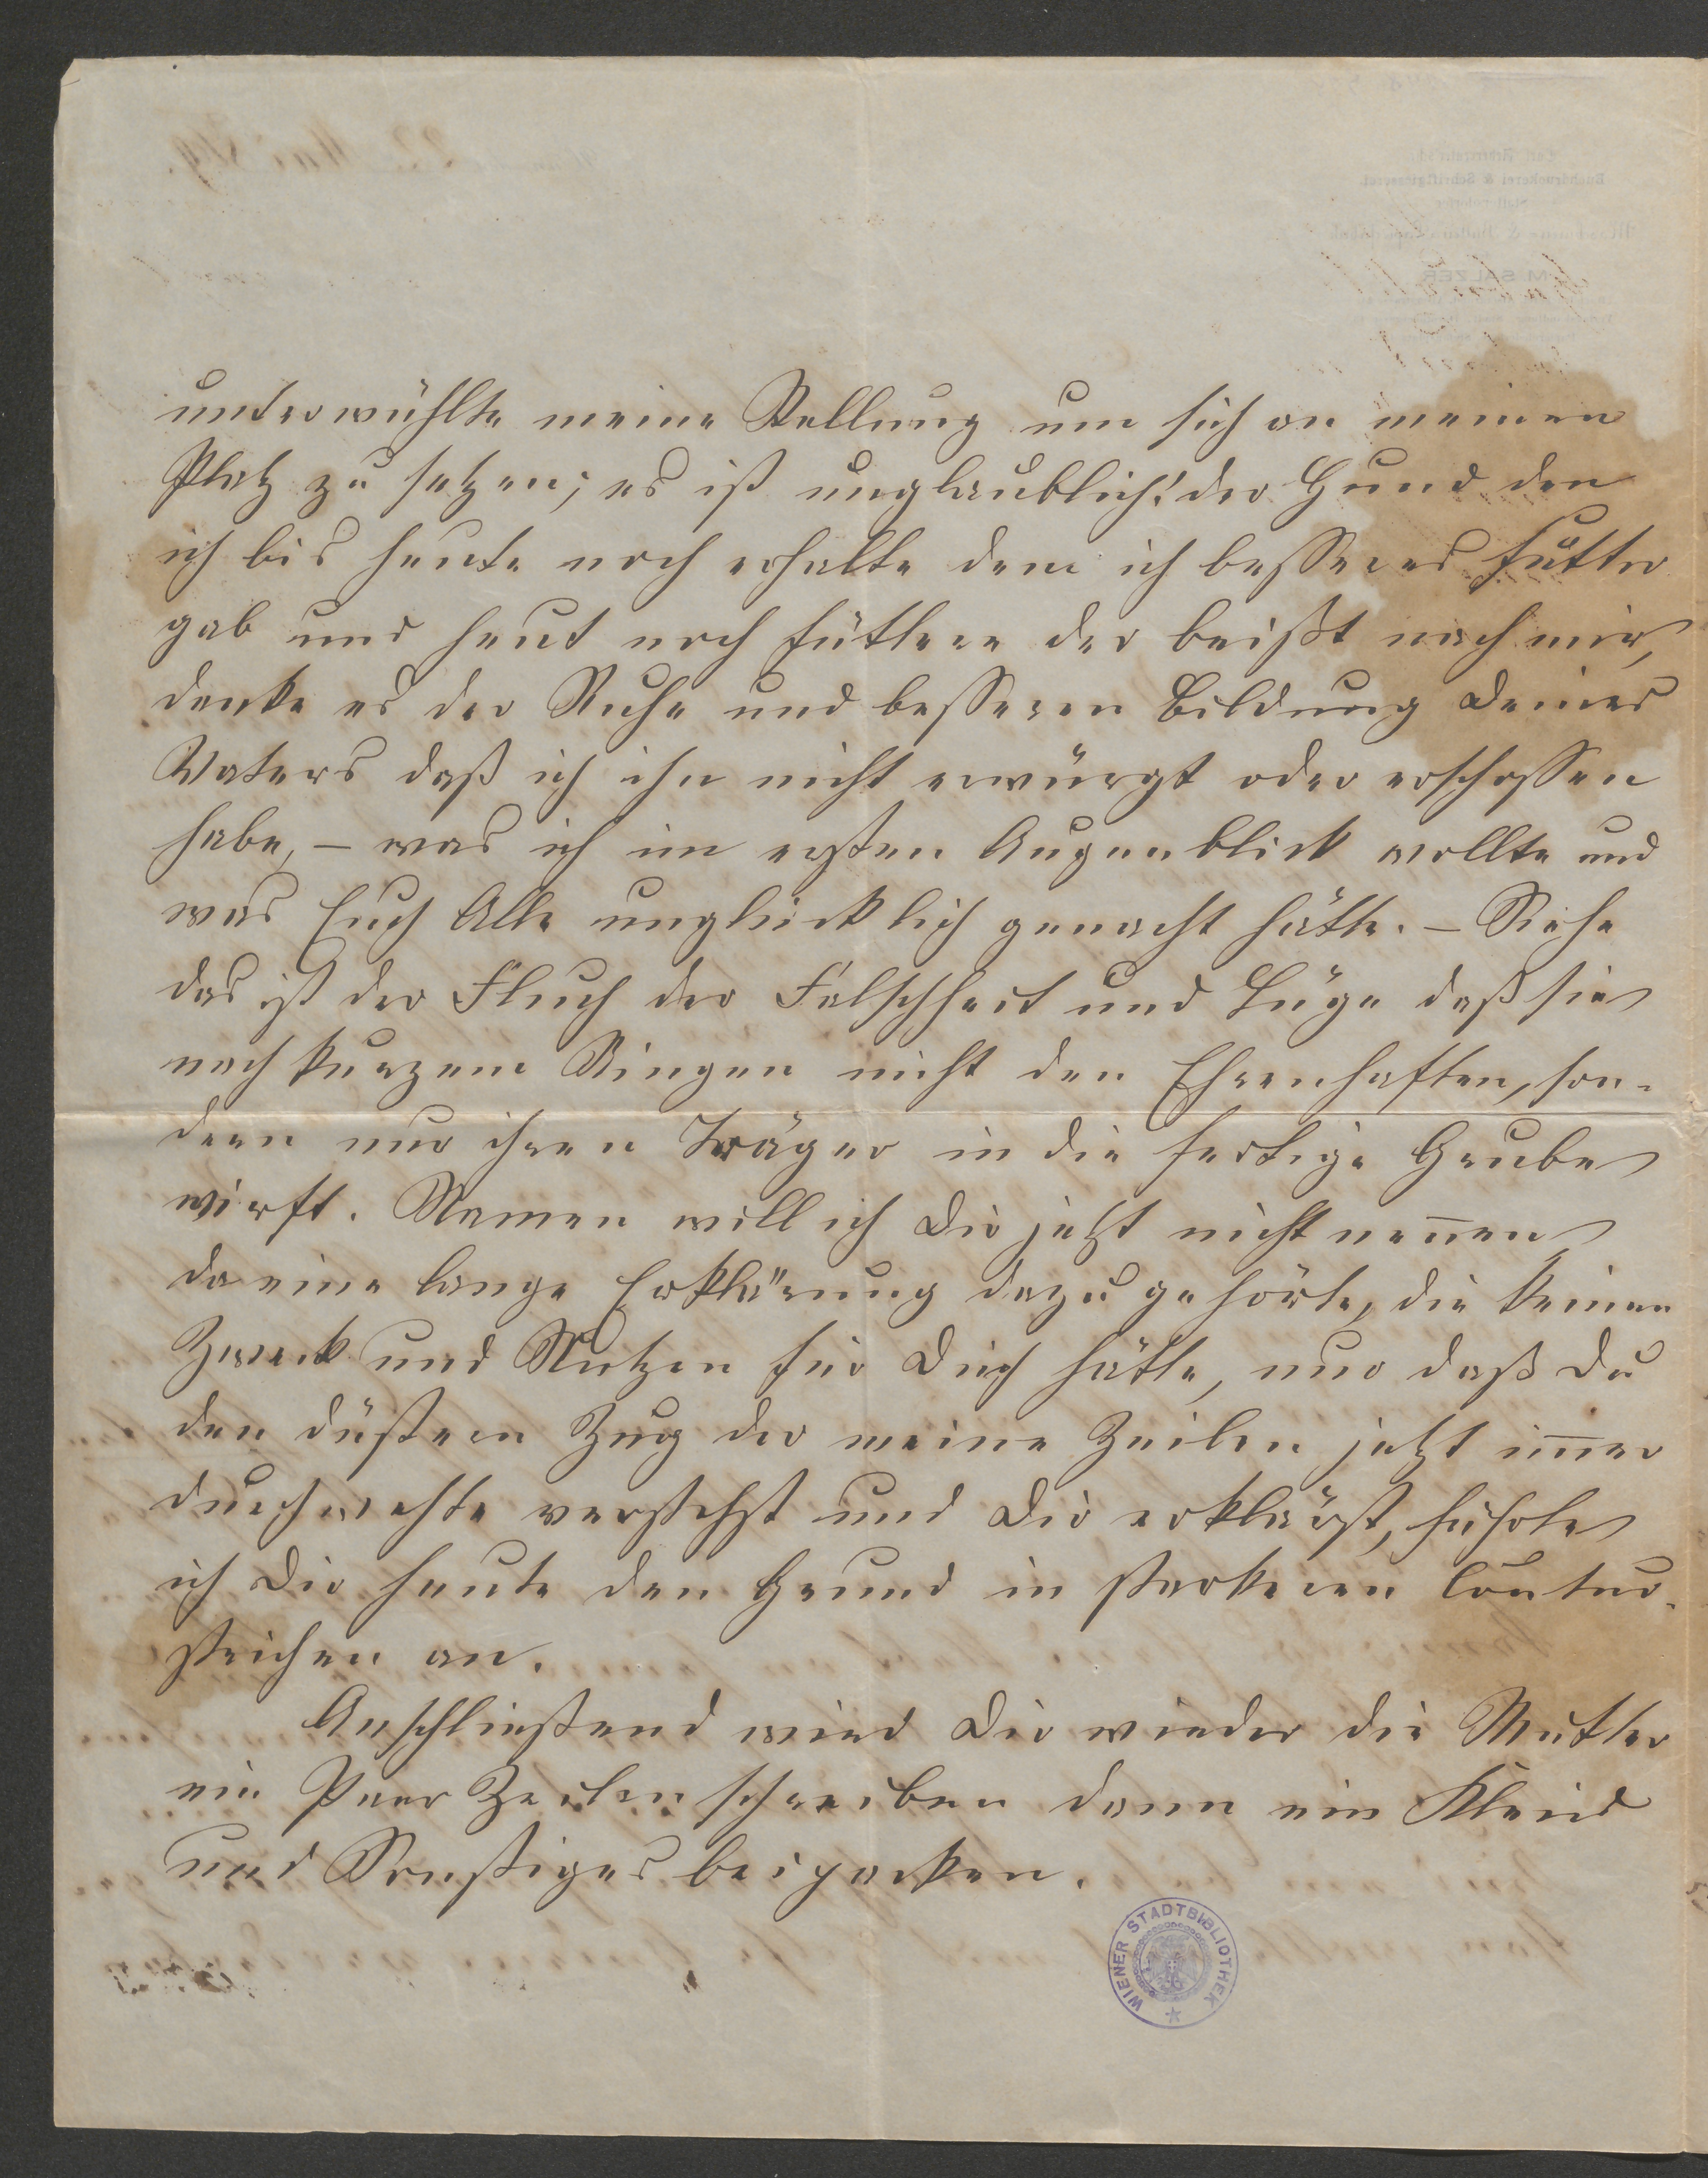 unterwühlte meine Stellung um sich an meinen
Platz zu setzen; es ist unglaublich! der Hund den
ich bis heute noch erhalte dem ich besseres Futter
gab und heut noch füttere der beißt nach mir,
danke es der Ruhe und besseren Bildung Deines
Vaters daß ich ihn nicht erwürgt oder erschossen
habe, – was ich im ersten Augenblick wollte und
was Euch Alle unglücklich gemacht hätte. – Siehe
das ist der Fluch der Falschheit und Lüge daß sie
nach kurzem Ringen nicht den Ehrenhaften, son-
dern nur ihren Träger in die fertige Grube
wirft. Namen will ich Dir jetzt nicht nen̄en
da eine lange Erklärung dazu gehörte, die keinen
Zweck und Nutzen für Dich hätte, nur daß Du
den düstern Zug der meine Zeilen jetzt im̄er
durchwehte verstehst und Dir erklärst, führte
ich Dir heute den Grund in starkeren Contur-
strichen an.
Anschließend wird Dir wieder die Mutter
ein Paar Zeilen schreiben dann ein Kleid
und Sonstiges beipacken.
WIENER STADTBIBLIOTHEK
M SALZER
22 Mai